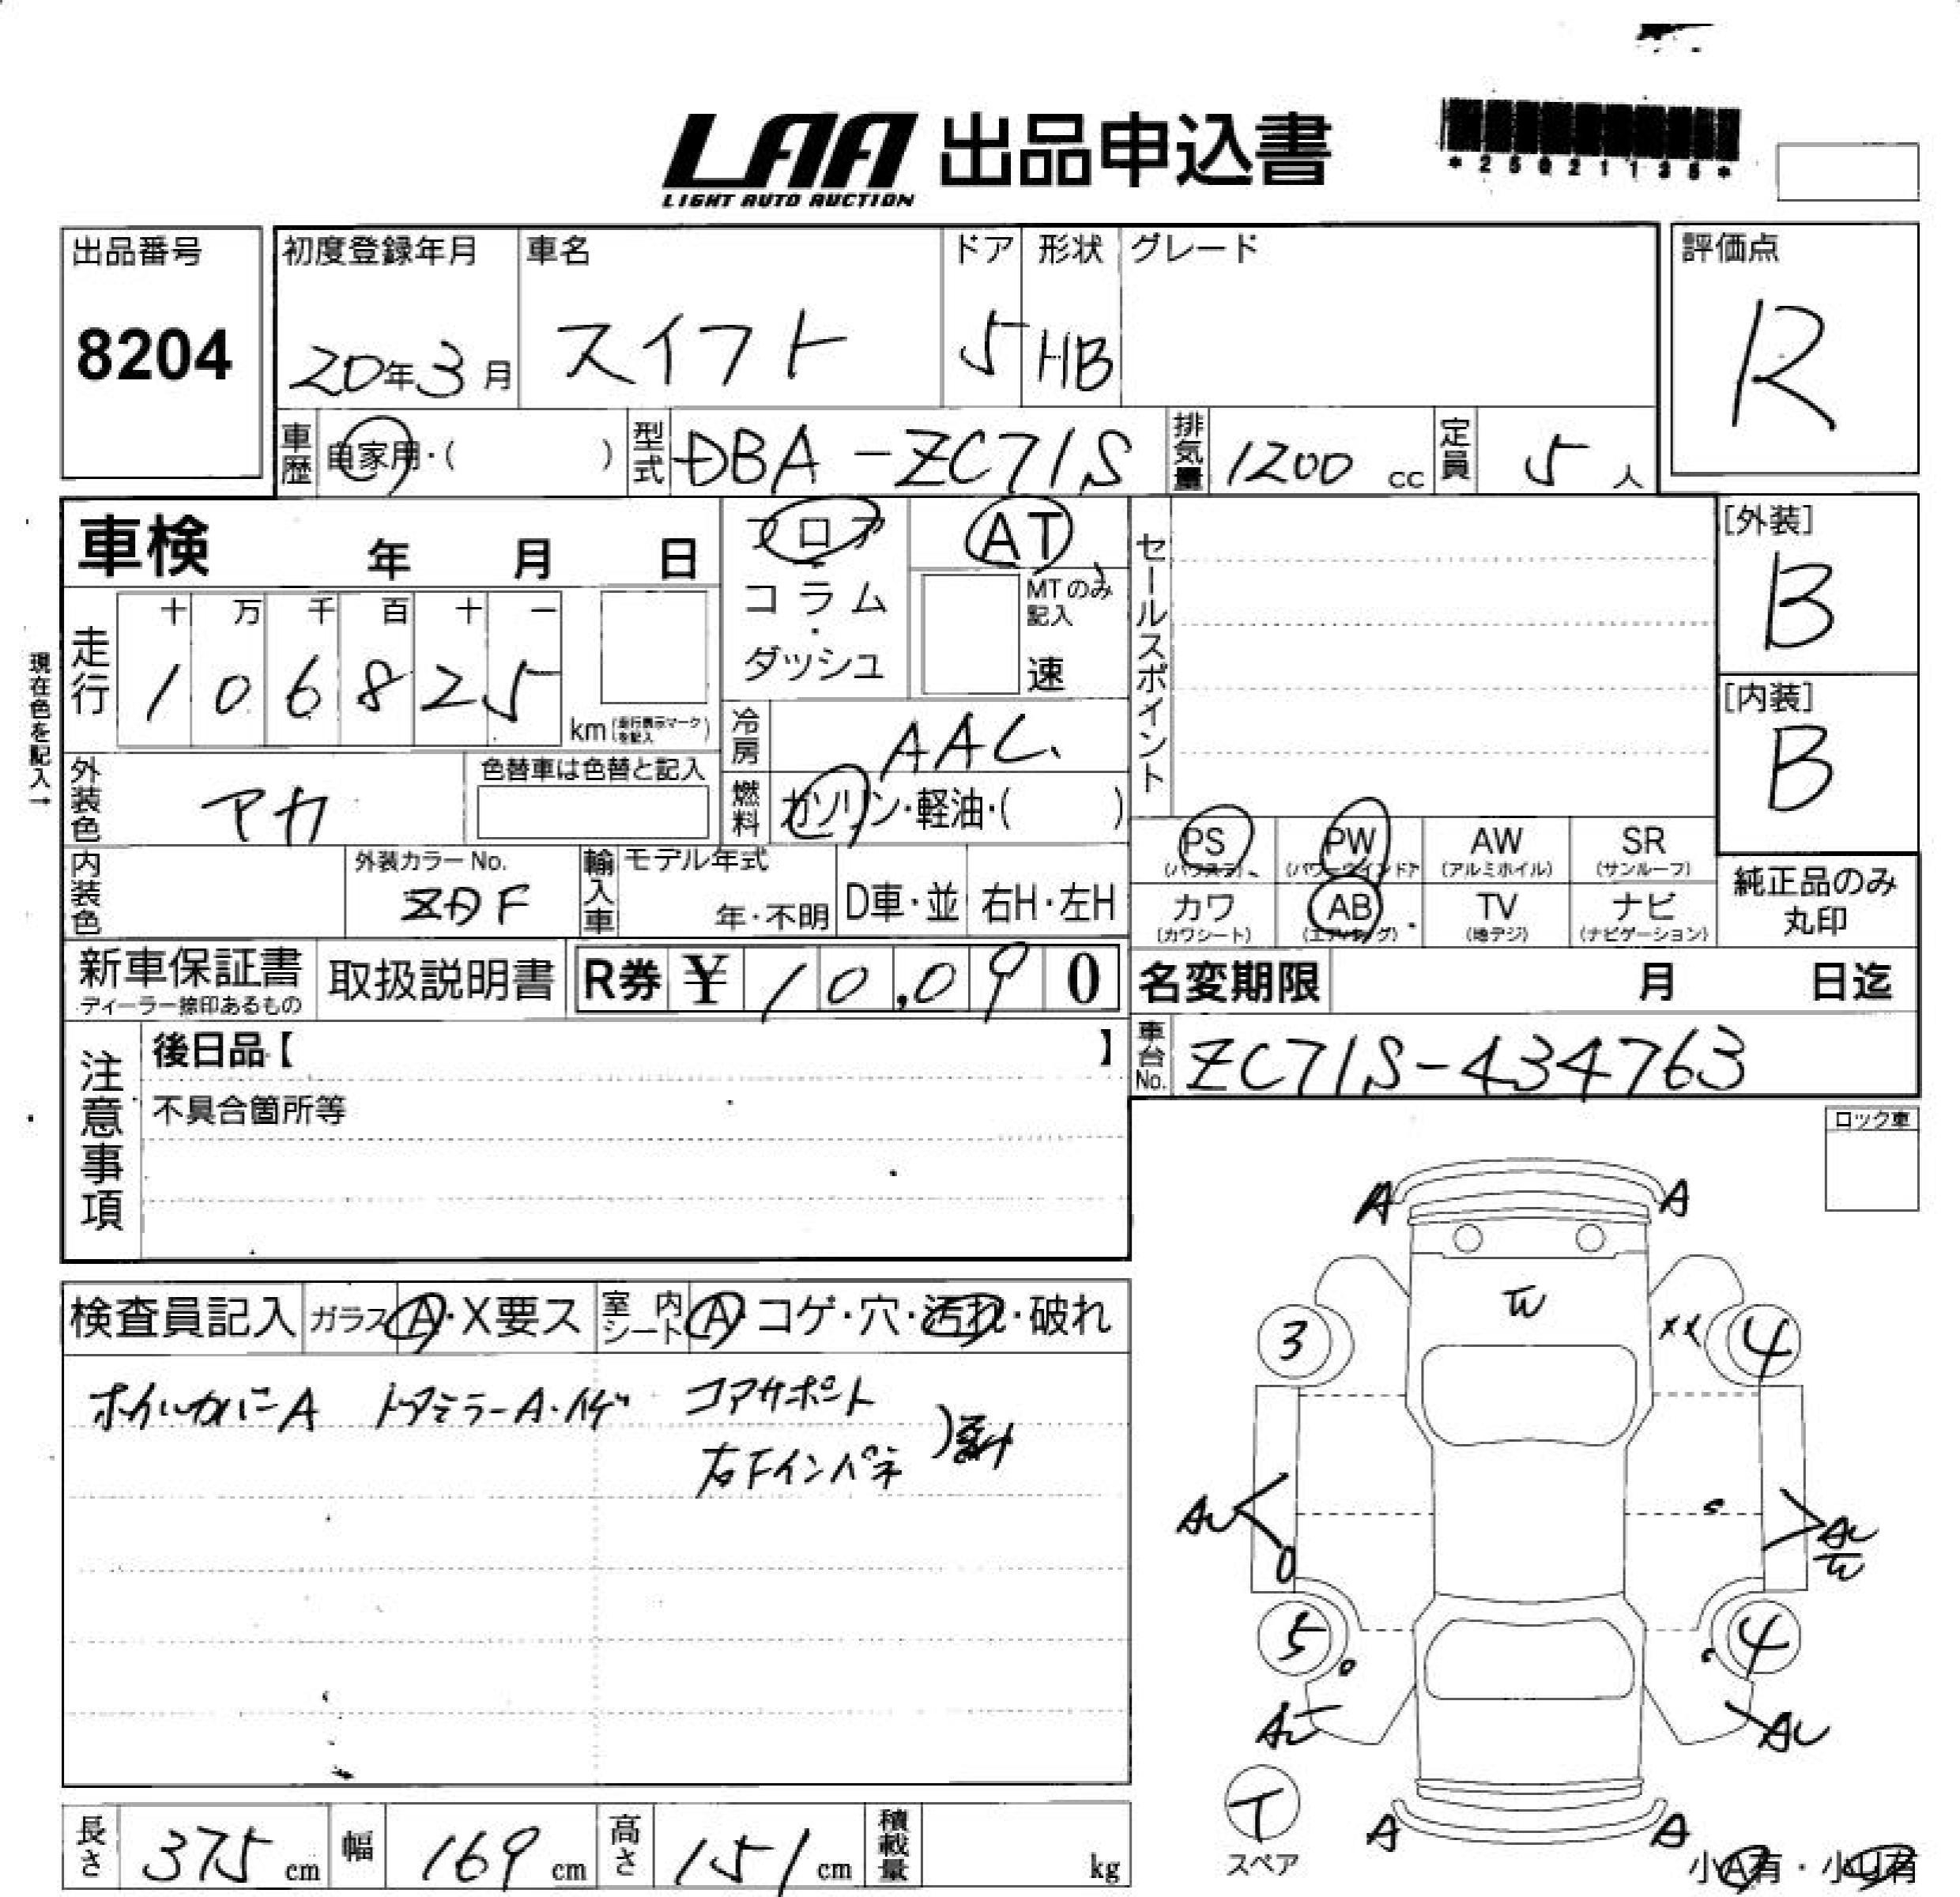 LAA 出品申込書
LIGHT AUTO AUCTION
*25021135*
出品番号
8204
初度登録年月
20年3月
車名
スイフト
ドア
5
形状
HB
グレード
評価点
R
車歴
自家用・( )
型式
DBA-ZC71S
排気量
1200 cc
定員
5 人
車検 年 月 日
フロア
・
コラム
・
ダッシュ
AT
MTのみ記入
速
セールスポイント
[外装]
B
[内装]
B
現在色を記入→
走行
十 万 千 百 十 一
1 0 6 8 2 5
km (走行表示マークを記入)
冷房
AAC
外装色
アカ
色替車は色替と記入
燃料
ガソリン・軽油・( )
PS
(パワステ)
PW
(パワーウインドウ)
AW
(アルミホイル)
SR
(サンルーフ)
カワ
(カワシート)
AB
(エアバッグ)
TV
(地デジ)
ナビ
(ナビゲーション)
純正品のみ
丸印
内装色
外装カラーNo.
ZDF
輸入車
モデル年式
年・不明
D車・並
右H・左H
新車保証書
ディーラー捺印あるもの
取扱説明書
R券 ¥ 10,090
名変期限 月 日迄
車台No.
ZC71S-434763
注意事項
後日品【 】
不具合箇所等
ロック車
検査員記入
ガラス
A・X要ス
室内シート
A・コゲ・穴・汚れ・破れ
ホイルカバーA ドアミラーA・イゲ コアサポート
右Fインパネ
A A
W
3 XX 4
AU AU
W
5 4
AU AU
T
スペア
A A
小A有・小U有
長さ
375 cm
幅
169 cm
高さ
151 cm
積載量
kg